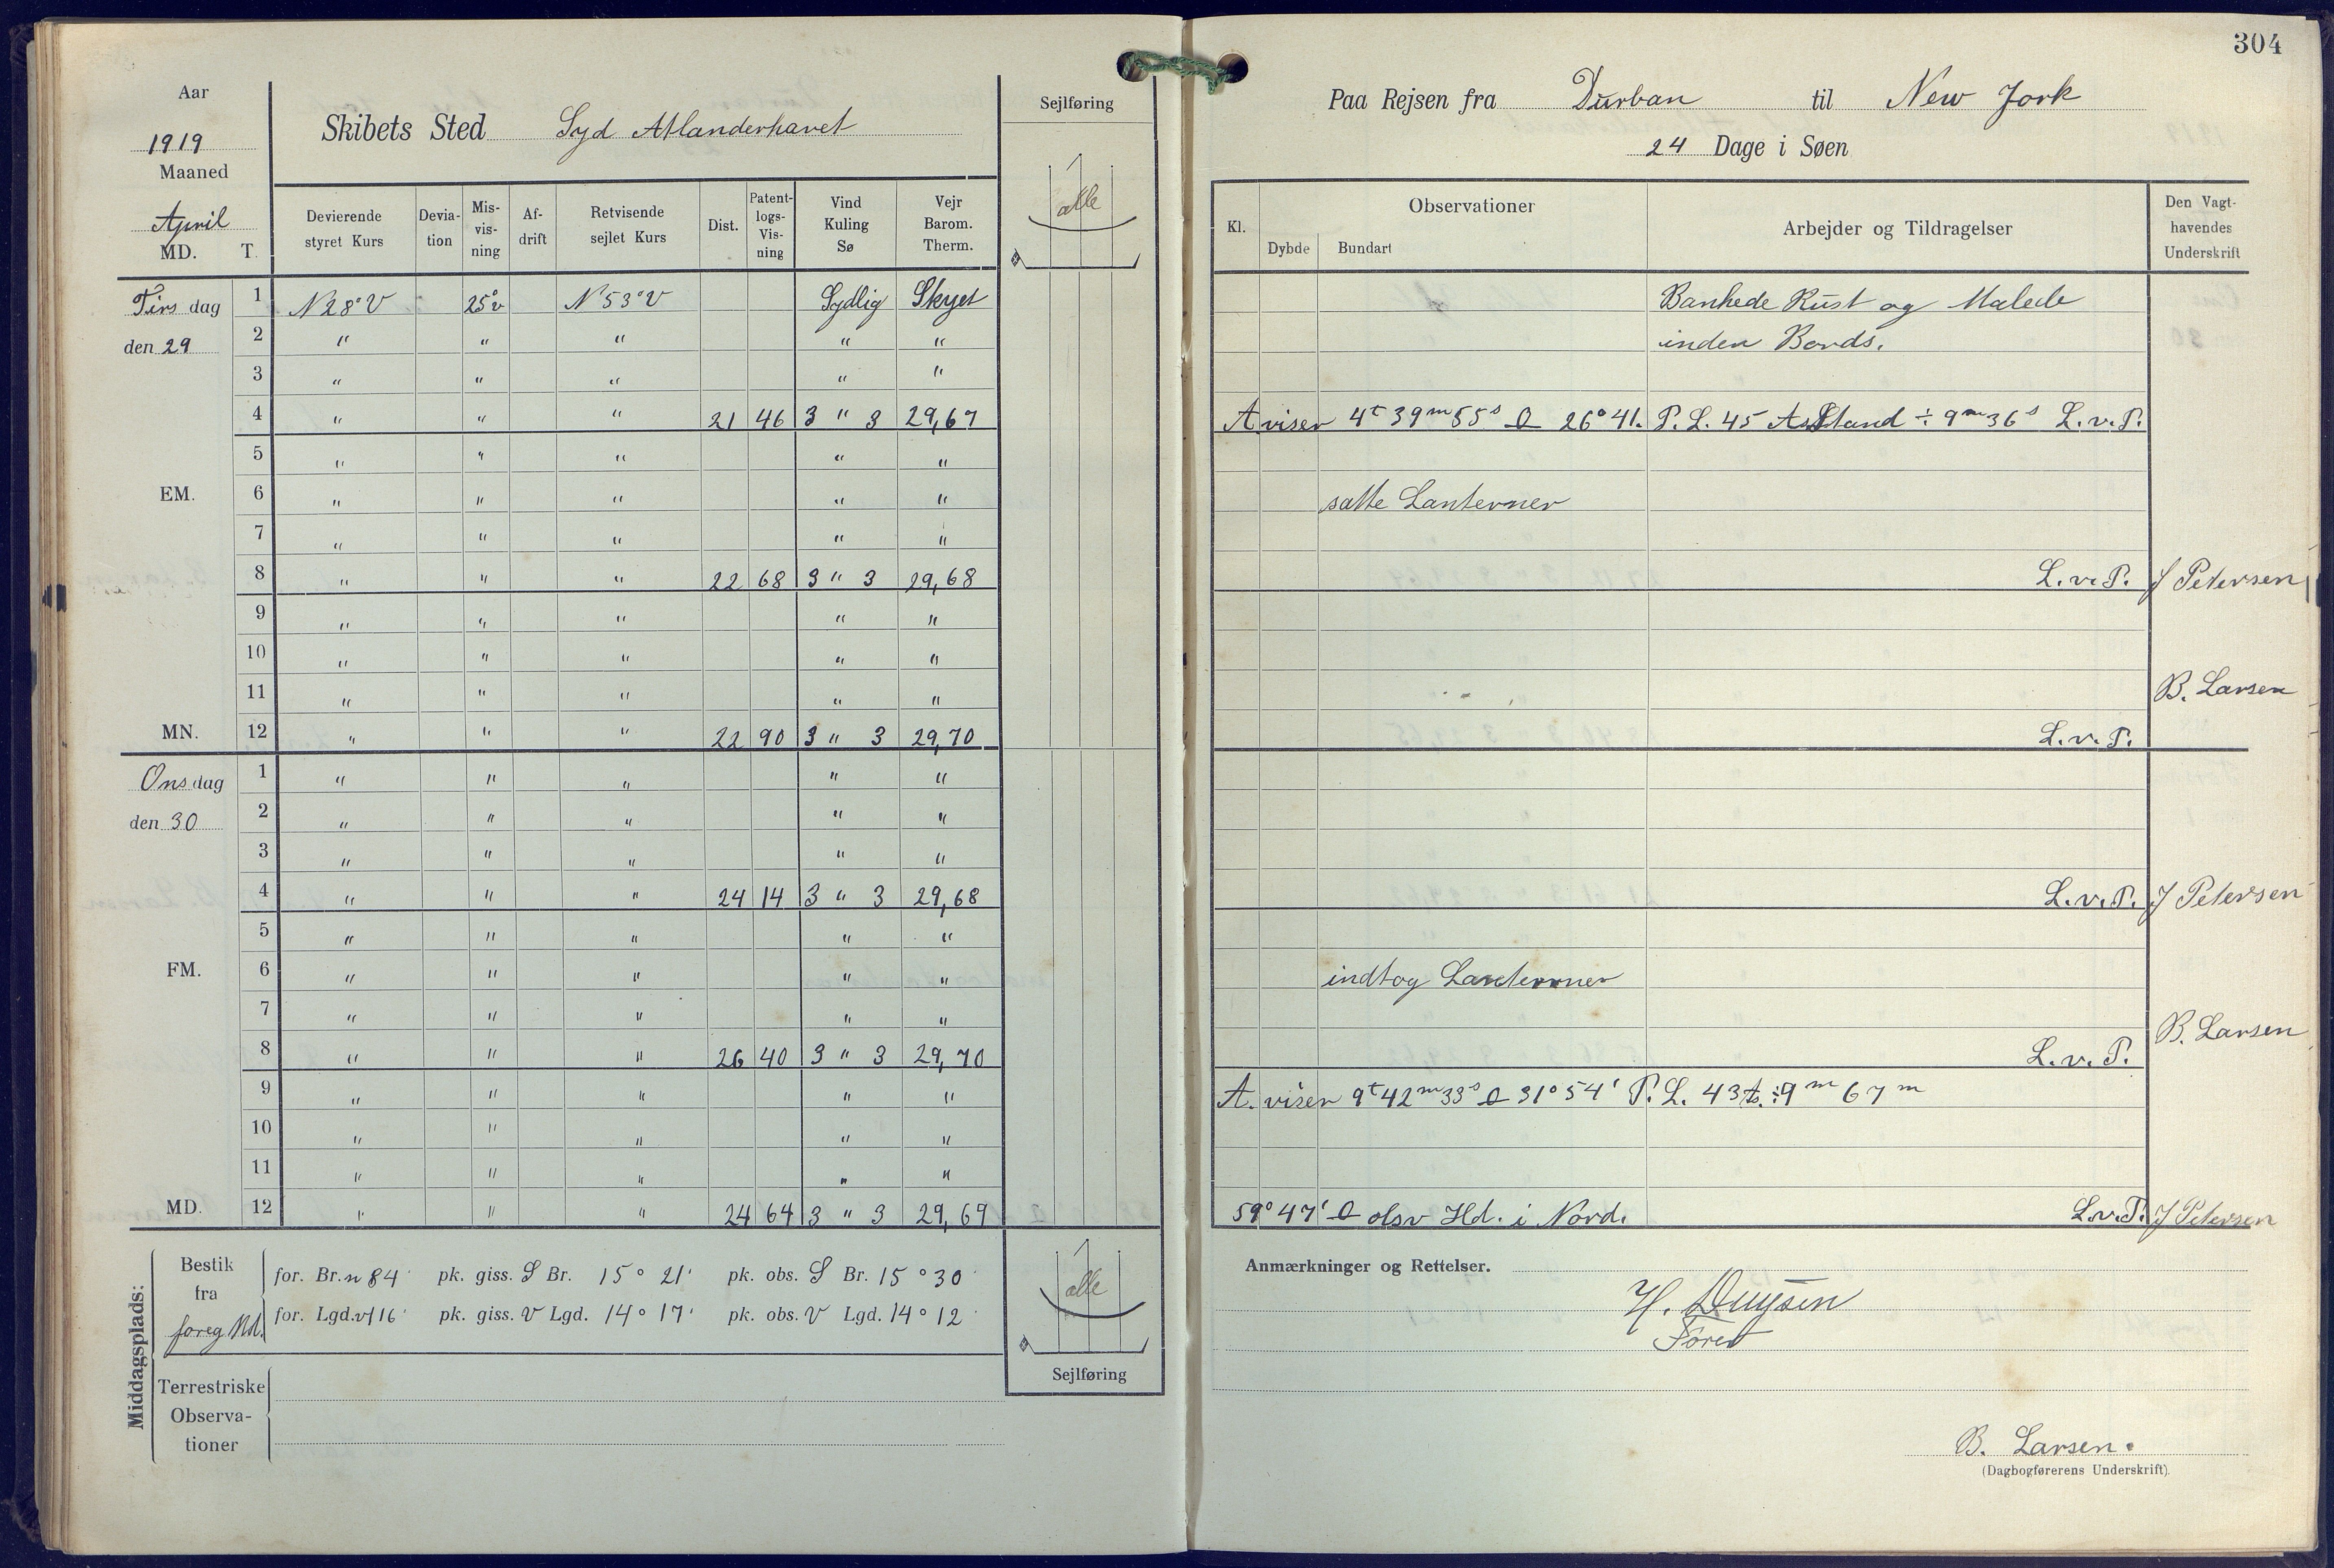 304
Aar
1919
Maaned
April
MD. T.
Skibets Sted Syd Atlanderhavet
Sejlføring
alle
Devierende styret Kurs | Deviation | Misvisning | Afdrift | Retvisende sejlet Kurs | Dist. | Patentlogs-Visning | Vind Kuling Sø | Vejr Barom. Therm.
Tirsdag 1 N28°V 25°v N53°V Sydlig Skyet
den 29 2 " " " " "
3 " " " " "
4 " " " 21 46 3 " 3 29,67
5 " " " " "
EM. 6 " " " " "
7 " " " " "
8 " " " 22 68 3 " 3 29,68
9 " " " " "
10 " " " " "
11 " " " " "
MN. 12 " " " 22 90 3 " 3 29,70
Onsdag 1 " " " " "
den 30 2 " " " " "
3 " " " " "
4 " " " 24 14 3 " 3 29,68
5 " " " " "
FM. 6 " " " " "
7 " " " " "
8 " " " 26 40 3 " 3 29,70
9 " " " " "
10 " " " " "
11 " " " " "
MD. 12 " " " 24 64 3 " 3 29,69
Middagsplads:
Bestik fra foreg Md.
for. Br. n 84' pk. giss. S Br. 15° 21' pk. obs. S Br. 15° 30'
for. Lgd. v 116' pk. giss. V Lgd. 14° 17' pk. obs. V Lgd. 14° 12'
Terrestriske Observationer
alle
Sejlføring
Paa Rejsen fra Durban til New Jork
24 Dage i Søen
Kl. | Observationer | Dybde | Bundart | Arbejder og Tildragelser | Den Vagthavendes Underskrift
Bankede Rust og Malede
inden Bords.
A viser 4t 39m 55s O 26°41. P. L. 45 A Stand ÷ 9m 36s L.v.P.
satte Lanterner
L.v.P. J Petersen
B. Larsen
L.v.P.
L.v.P. J Petersen
indtog Lanterner
B. Larsen
L.v.P.
A. viser 9t 42m 33s O 31°54' P. L. 43 ÷ 9m 67m
59°47' O obsv Hd. i Nord. L.v.P. J Petersen
Anmærkninger og Rettelser.
H. Duysen
Fører
B. Larsen.
(Dagbogførerens Underskrift).